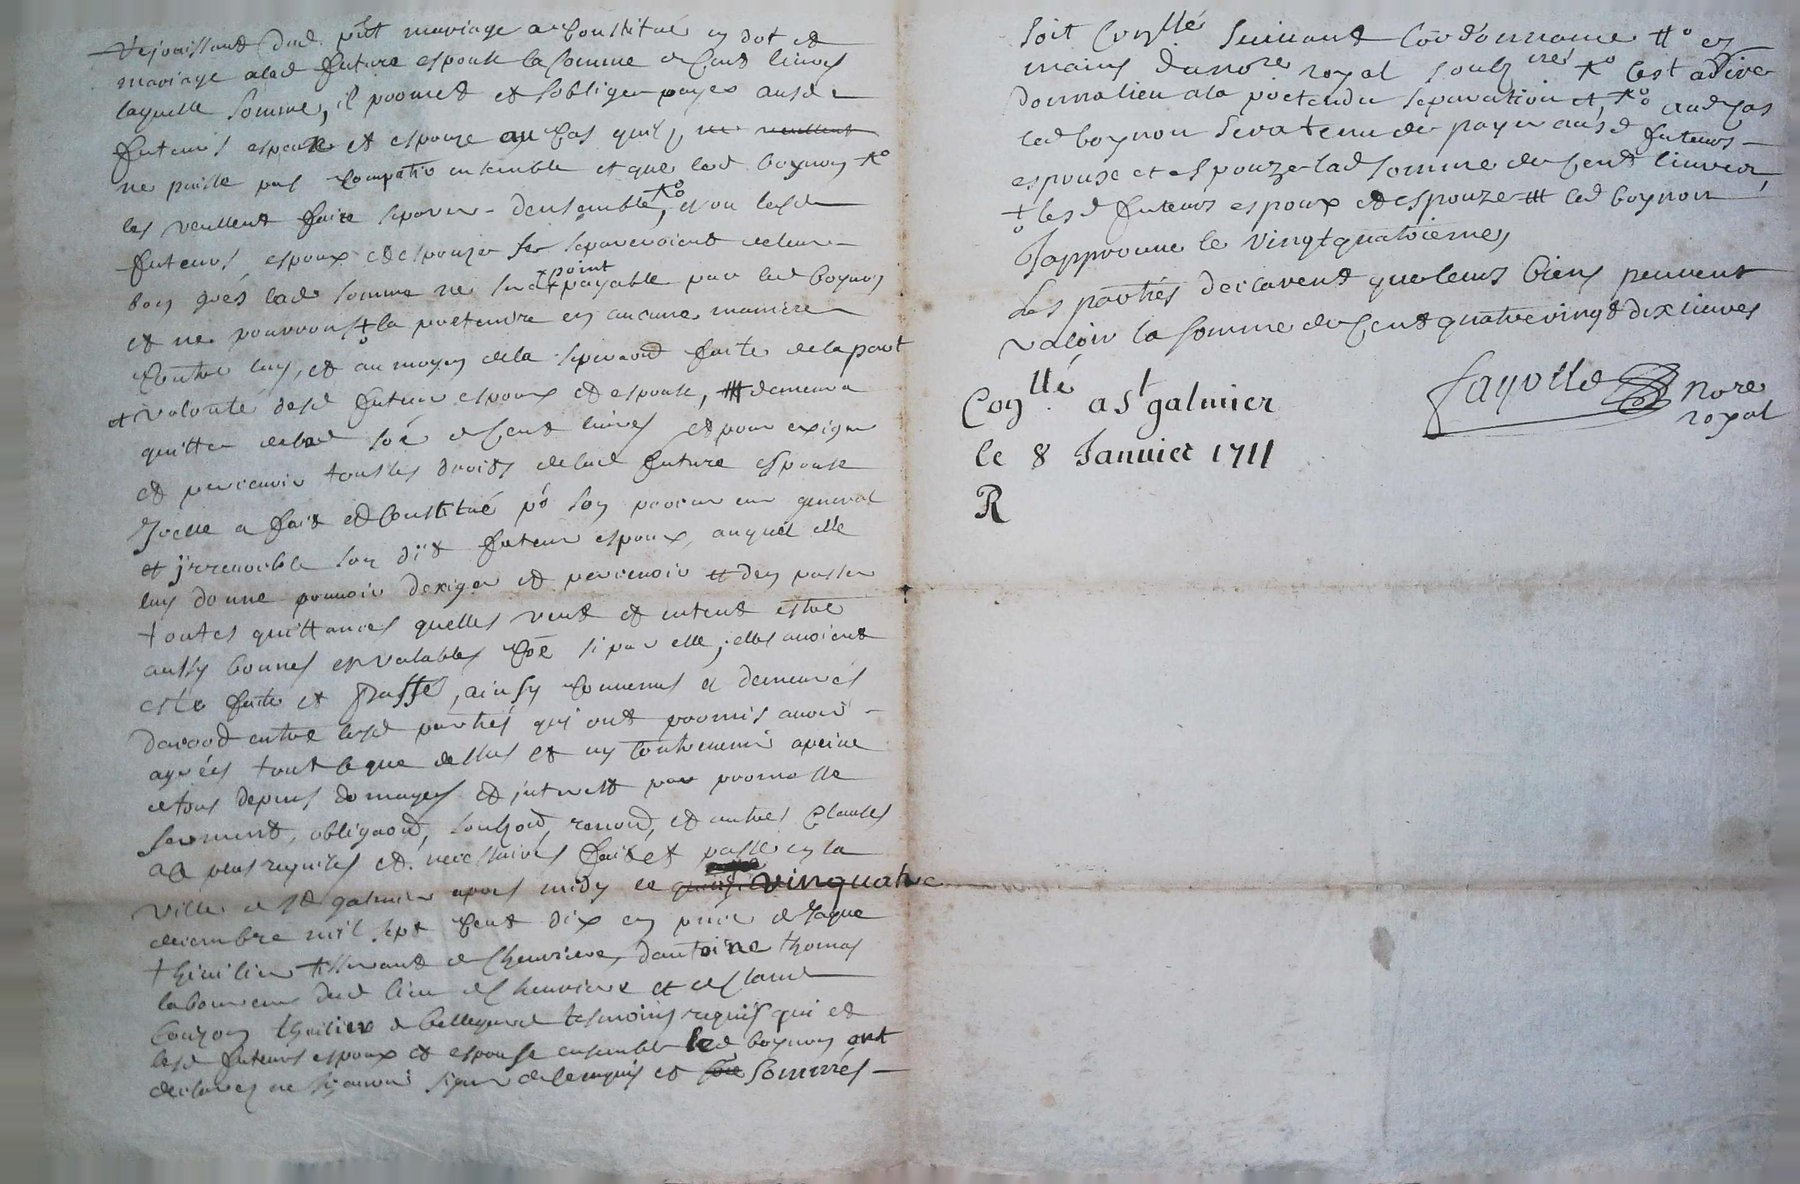 Rejouissant dud. pñt mariage a Constitué en dot et
mariage alad future espouse la somme de Cent livres
laquelle somme, il promet et soblige payer ausd
futeurs espoux et espouze au Cas quils, ne veullent
ne puisse pas Compatir ensemble et que led boynon
les veullent faire separer densemble, et ou lesd
futeurs espoux et espouze se separeroient de leur
bon grés lad somme ne sera point payable par led boynon
et ne pourront la pretendre en aucune maniere
Contre luy, et au moyen de la faite de la part
et volonté desd futeur espoux et espouse, demeura
quitte de lad de Cent livres et pour exiger
et percevoir tous les droits de lad future espouse
Icelle a fait et Constitué po son procureur general
et jrrevocable son dit futeur espoux, auquel elle
luy donne pouvoir dexiger et percevoir et den passer
toutes quittances quelles veut et entent estre
aussy bonnes et valables Coe si par elle, elles avoient
esté faite et passé, ainsy Convenus et demeurés
dacord entre lesd parties qui ont promis avoir
agreés tout ce que dessus et ny Contrevenir a peine
de tous depens domages et jnterest par promesse
serment, obligaon, renond, et autres Clauses
a ce plus requises et necessaires fait et passé en la
ville de st galmier apres midy le vinquatre
decembre mil sept Cent dix en pnce de Jaque
tisserant de Chevriere, dantoine thomas
laboureur dud lieu de Chevriere et de
de Bellegarde tesmoins requis qui et
lesd futeurs espoux et espouse ensemble led boynon ont
declarés ne sçavoir signer de ce enquis et sommés
soit Conllé suivant Lordonnance
mains du nore royal soubz
donna lieu a la pretendue separation et, aud Cas
led boynon sera tenu de payer ausd futeurs
espouse et espouze lad somme de Cent livres,
lesd futeurs espoux et espouze led boynon
Japprouve le vingtquatrieme,
Les parties declarent que leurs biens peuvent
valoir la somme de Cent quatrevingt dix livres
Fayolle nore
royal
Conllé a St galmier
le 8 Janvier 1711
R